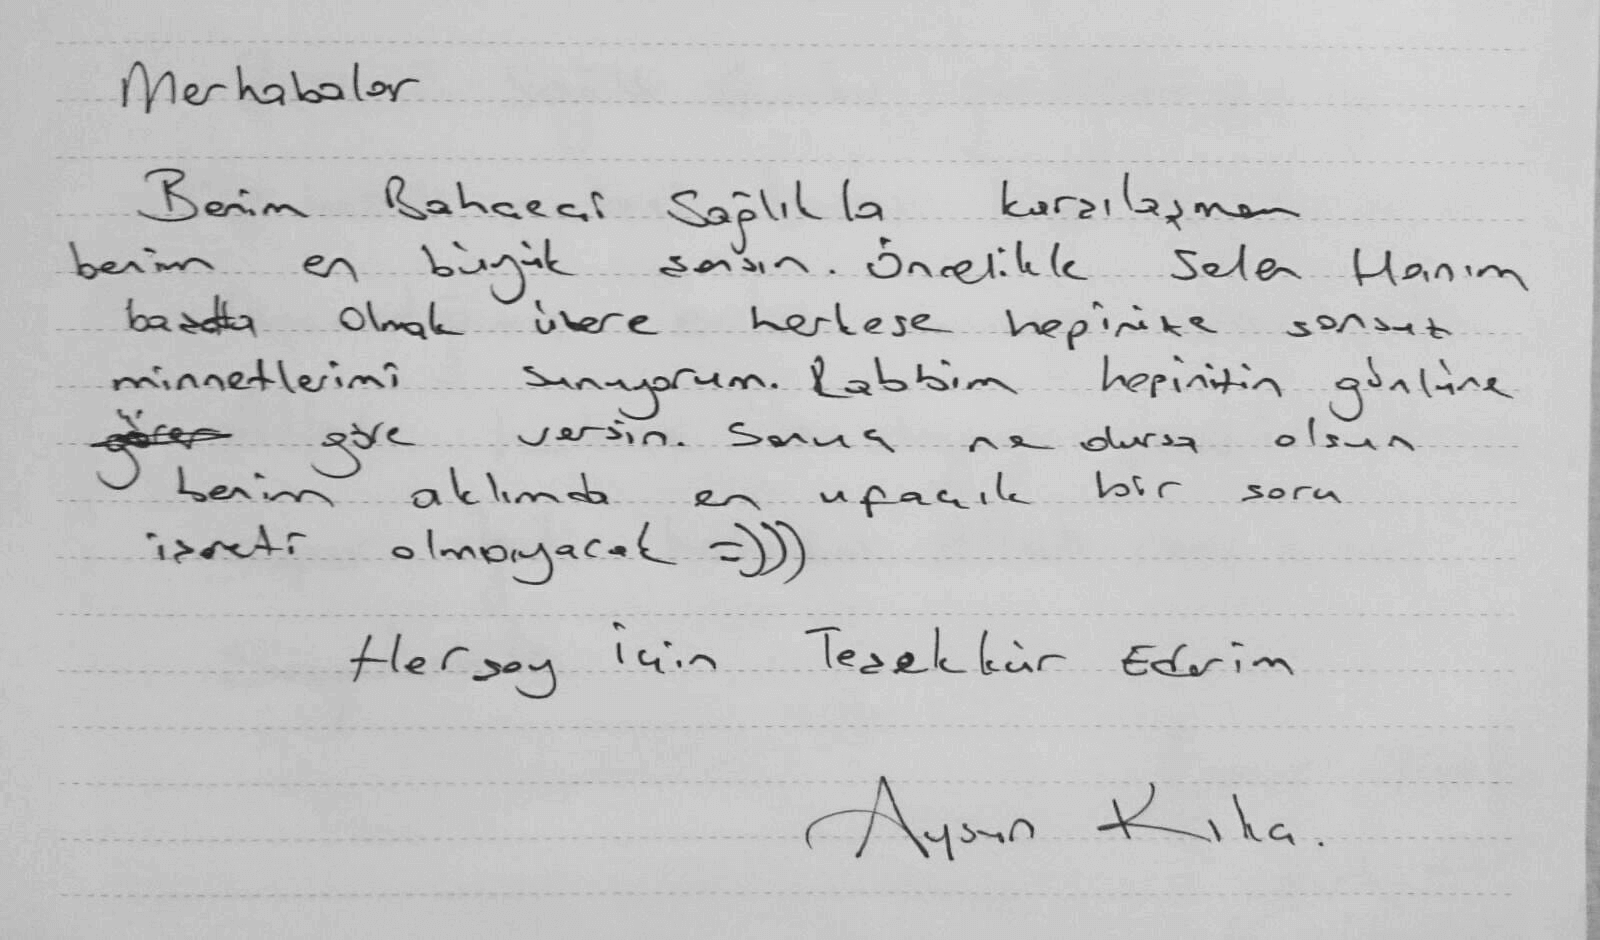 Merhabalar
Benim Bahçeci Sağlıkla karşılaşmam
benim en büyük şansım. Öncelikle Selen Hanım
başta olmak üzere herkese hepinize sonsuz
minnetlerimi sunuyorum. Rabbim hepinizin gönlüne
göre versin. Sonuç ne olursa olsun
benim aklımda en ufacık bir soru
işareti olmayacak =)))
Herşey İçin Teşekkür Ederim
Aysun